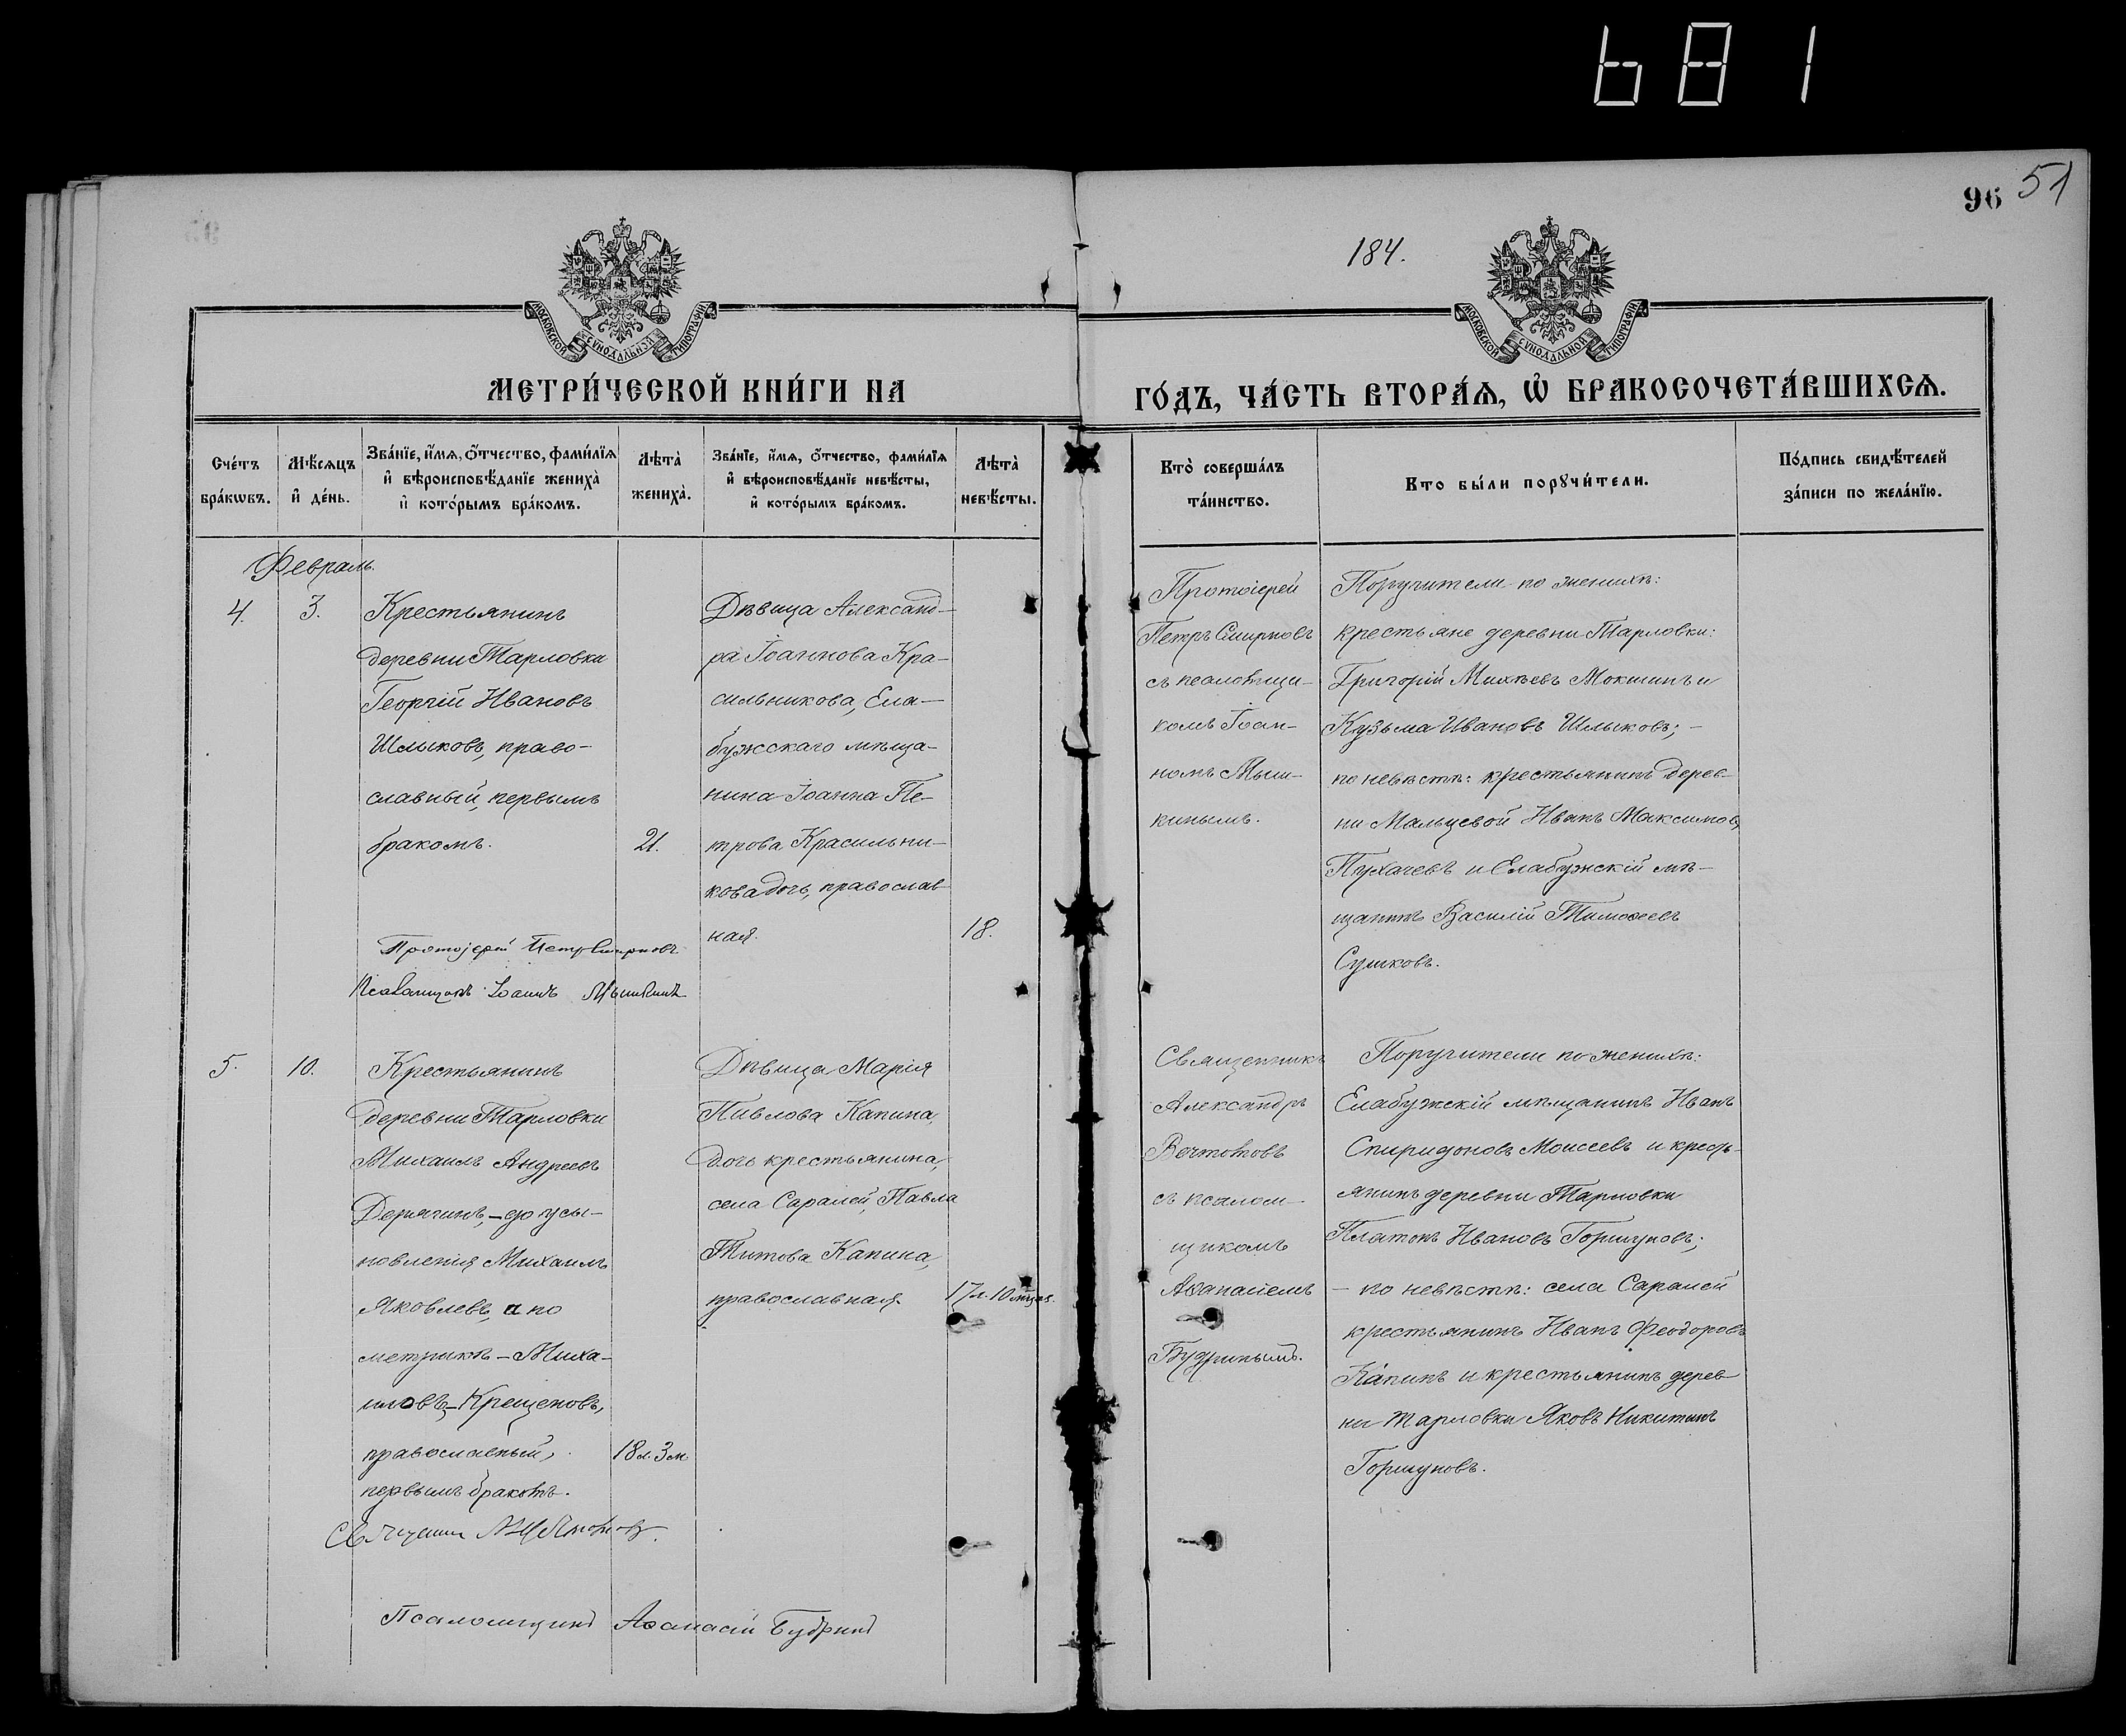 681
96 51
184.
МОСКОВСКОЙ СѴНОДАЛЬНОЙ ТИПОГРАФІИ
МОСКОВСКОЙ СѴНОДАЛЬНОЙ ТИПОГРАФІИ
МЕТРИ́ЧЕСКОЙ КНИ́ГИ НА
ГО́ДЪ, ЧА́СТЬ ВТОРА́Ѧ, Ѡ҆ БРАКОСОЧЕТА́ВШИХСѦ.
Сче́тъ
бра́кѡвъ.
Мѣ́сѧцъ
и҆ де́нь.
Зва́нїе, и҆́мѧ, ѻ҆́тчество, фами́лїѧ
и҆ вѣроисповѣ́данїе жениха̀
и҆ кото́рымъ бра́комъ.
Лѣта̀
жениха̀.
Зва́нїе, и҆́мѧ, ѻ҆́тчество, фами́лїѧ
и҆ вѣроисповѣ́данїе невѣ́сты,
и҆ кото́рымъ бра́комъ.
Лѣта̀
невѣ́сты.
Кто̀ соверша́лъ
та́инство.
Кто бы́ли порꙋчи́тели.
По́дпись свидѣ́телей
за́писи по жела́нїю.
Февраль.
4.
3.
Крестьянинъ
деревни Тарловки
Георгій Ивановъ
Шлыковъ, право-
славный, первымъ
бракомъ.
21.
Дѣвица Александ-
ра Іоаннова Кра-
сильникова, Ела-
бужскаго мѣща-
нина Іоанна Пе-
трова Красильни-
кова дочь, православ
ная.
18.
Протоіерей
Петръ Смирновъ
съ псаломщи-
комъ Іоан-
номъ Мыш-
кинымъ.
Поручители по женихѣ:
крестьяне деревни Тарловки:
Григорій Михѣевъ Мокшинъ и
Кузьма Ивановъ Шлыковъ; -
по невѣстѣ: крестьянинъ дерев-
ни Мальцевой Иванъ Максимовъ
Пухачевъ и Елабужскій мѣ-
щанинъ Василій Тимоѳеевъ
Сушковъ.
Протоіерей Петръ Смирновъ
Псаломщикъ Іоаннъ Мышкинъ
5.
10.
Крестьянинъ
деревни Тарловки
Михаилъ Андреевъ
Дерягинъ, - до усы-
новленія Михаилъ
Яковлевъ, а по
метрикѣ - Миха-
иловъ - Крещеновъ,
православный,
первымъ бракомъ.
18 л. 3 м.
Дѣвица Марія
Павлова Капина,
дочь крестьянина,
села Саралей, Павла
Титова Капина,
православная.
17 л. 10 мѣсяц.
Священникъ
Александръ
Вечтомовъ
съ псалом-
щикомъ
Аѳанасіемъ
Будринымъ.
Поручители по женихѣ:
Елабужскій мѣщанинъ Иванъ
Спиридоновъ Моисеевъ и кресть-
янинъ деревни Тарловки
Платонъ Ивановъ Горшуновъ;
- по невѣстѣ: села Саралей
крестьянинъ Иванъ Феодоровъ
Капинъ и крестьянинъ дерев-
ни Тарловки Яковъ Никитинъ
Горшуновъ.
Священник
Псаломщикъ Аѳанасій Будринъ